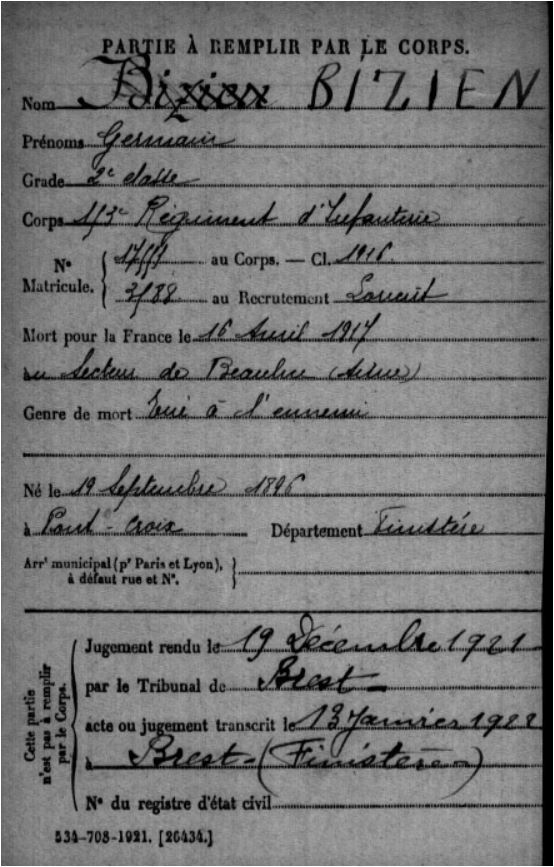 PARTIE À REMPLIR PAR LE CORPS.
Nom BIZIEN
Prénoms Germain
Grade 2e classe
Corps Régiment d'Infanterie
au Corps. — Cl. 1916
No Matricule.
au Recrutement Lorient
Mort pour la France le 16 Avril 1917
au Secteur de (Aisne)
Genre de mort Tué à l'ennemi
Né le 19 Septembre 1896
à Pont-Croix Département Finistère
Arrt municipal (pr Paris et Lyon),
à défaut rue et No.
Cette partie n'est pas à remplir par le Corps.
Jugement rendu le 19 Décembre 1921
par le Tribunal de Brest
acte ou jugement transcrit le 13 Janvier 1922
à Brest - (Finistère)
No du registre d'état civil
534-708-1921. [26434.]